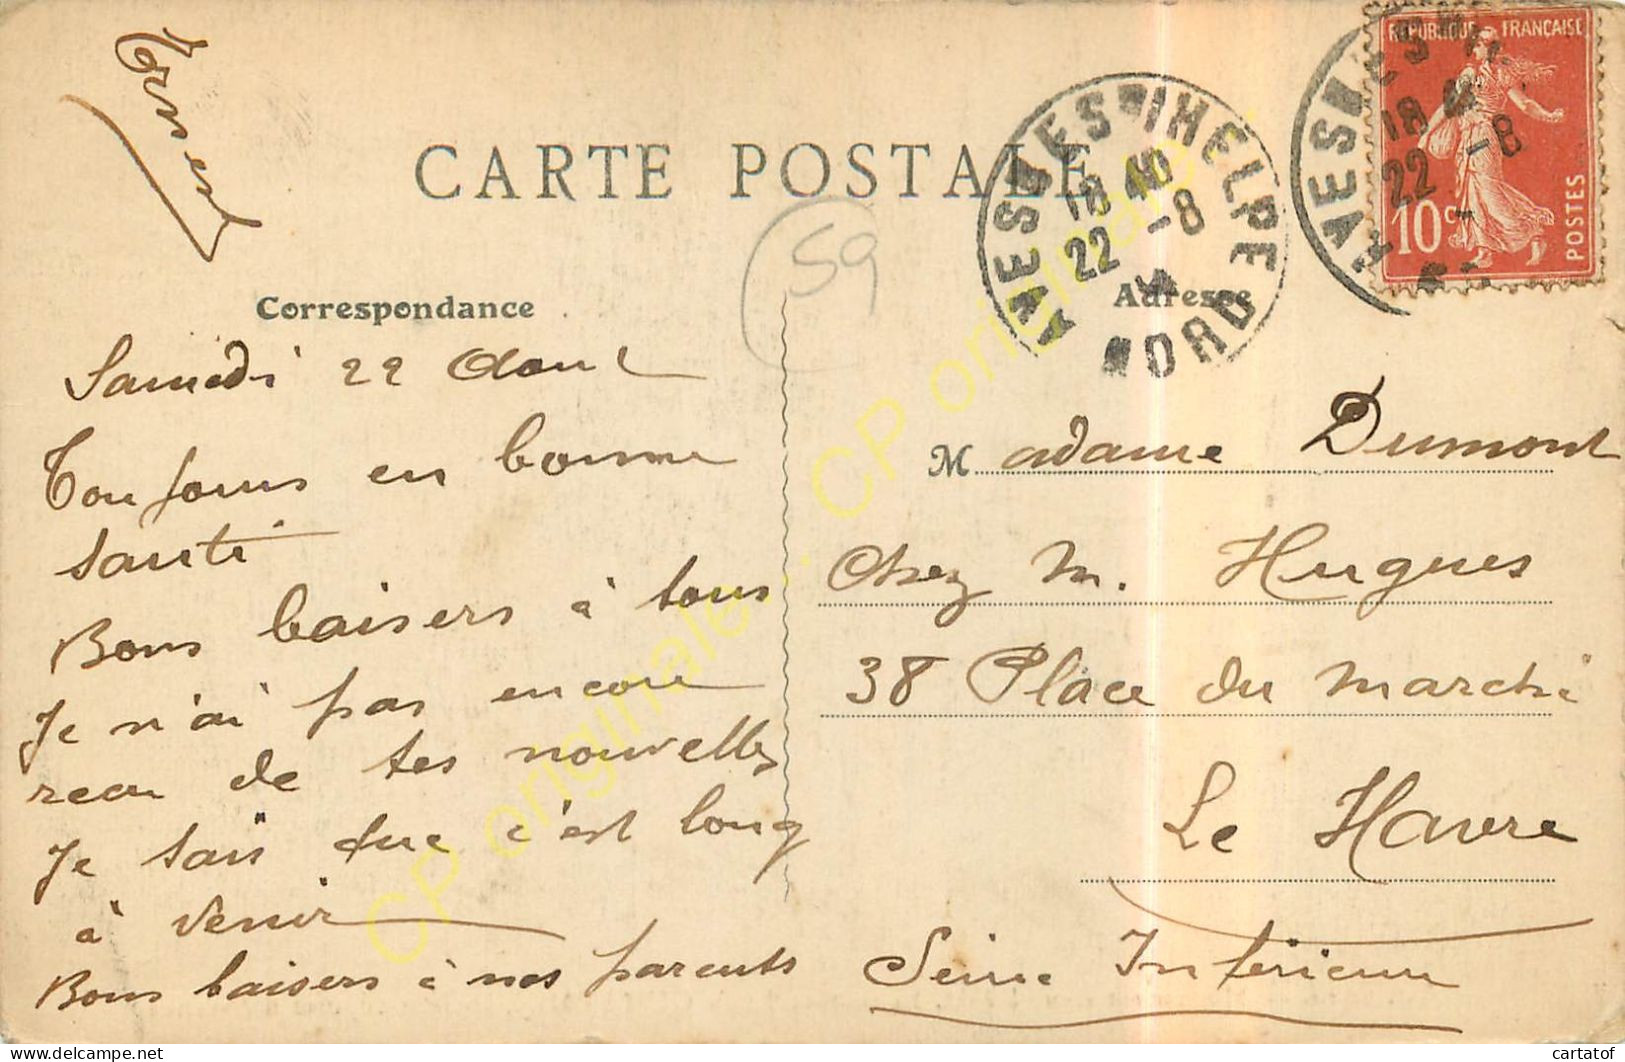 Ernest
CARTE POSTALE
Correspondance
Samedi 22 Aout
Toujours en bonne
santé
Bons baisers à tous
Je n'ai pas encore
recu de tes nouvelles
Je sais que c'est long
à venir
Bons baisers à nos parents
59
AVESNES S/HELPE
18 40
22 -8
NORD
REPUBLIQUE FRANÇAISE
10 c
POSTES
AVESNES
18 40
22 -8
Adresse
Madame Dumont
Chez M. Hugues
38 Place du Marché
Le Havre
Seine Inférieure
CP originale
CP originale
cartatof